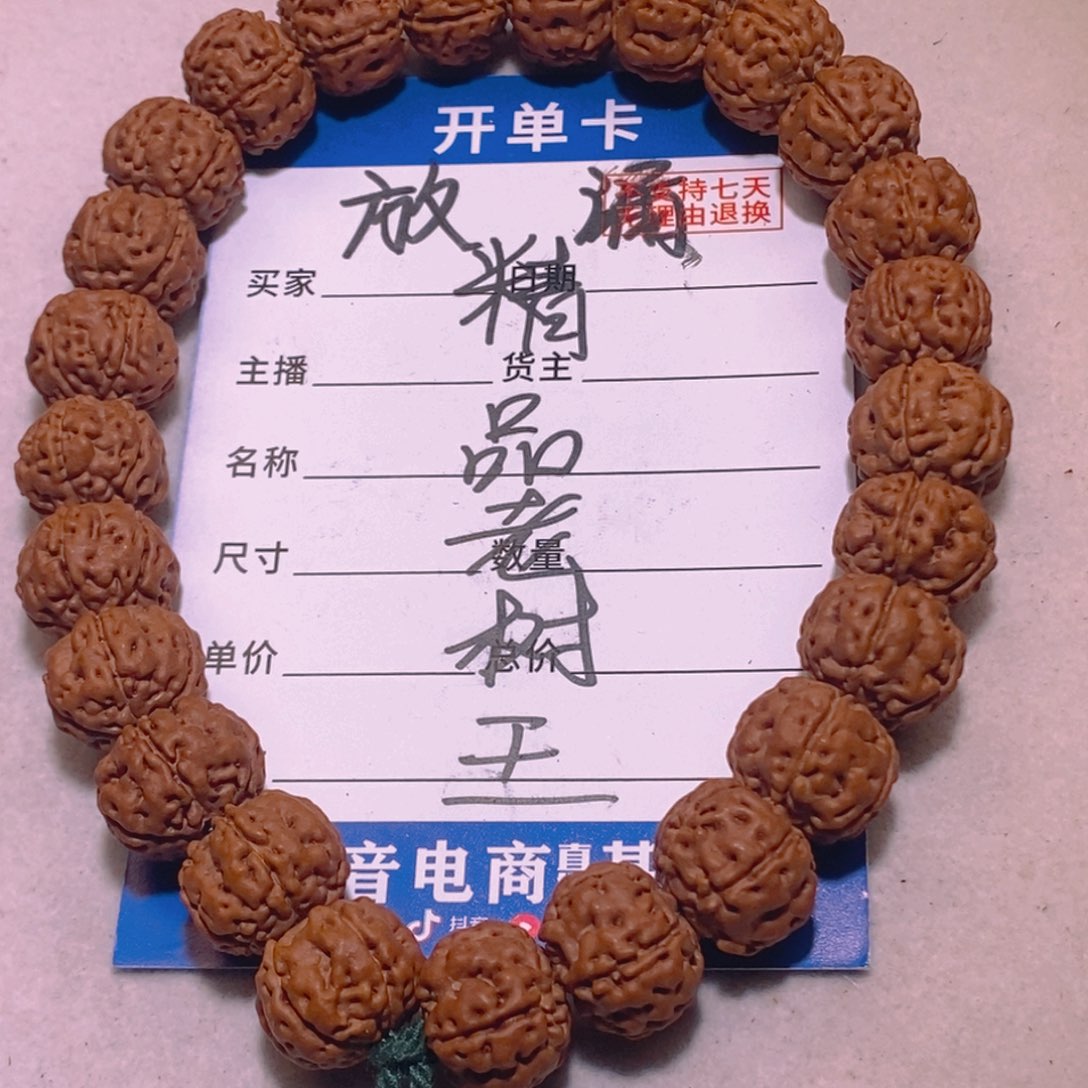 开单卡
放 漏
持七天
理由退换
精
买家 日期
主播 货主
品
名称
老
尺寸 数量
树
单价 总价
王
音电商直基
抖音